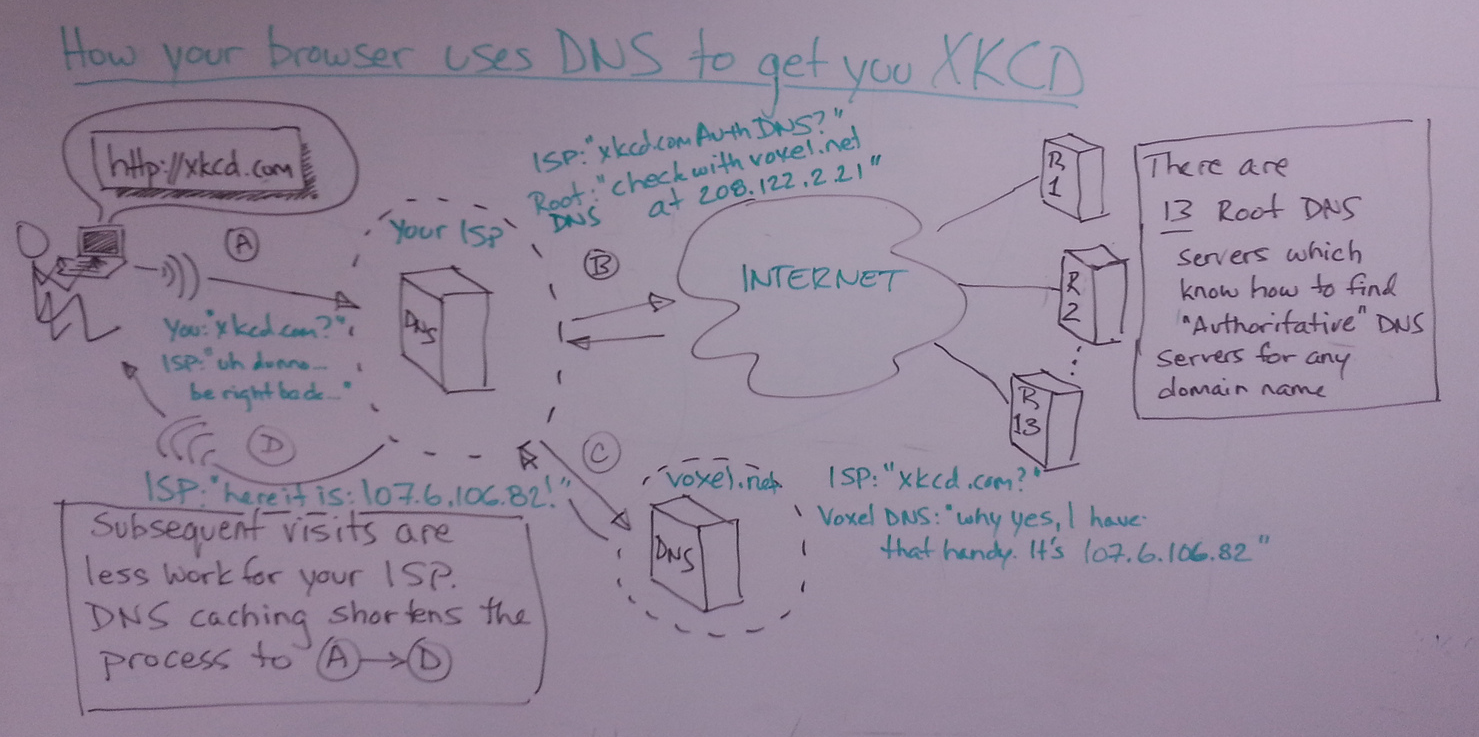 How your browser uses DNS to get you XKCD
http://xkcd.com
A
You: "xkcd.com?"
ISP: "uh dunno...
be right back..."
Your ISP
DNS
B
ISP: "xkcd.com Auth DNS?"
Root: "check with voxel.net
DNS at 208.122.2.21"
INTERNET
R
1
R
2
R
13
There are
13 Root DNS
servers which
know how to find
"Authoritative" DNS
servers for any
domain name
C
voxel.net
DNS
ISP: "xkcd.com?"
Voxel DNS: "why yes, I have
that handy. It's 107.6.106.82"
D
ISP: "here it is: 107.6.106.82!"
Subsequent visits are
less work for your ISP.
DNS caching shortens the
process to A → D